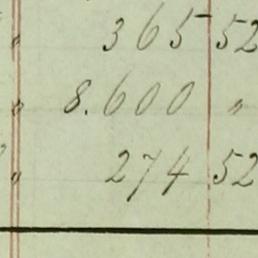 " 365 52
" 8.600 "
" 274 52